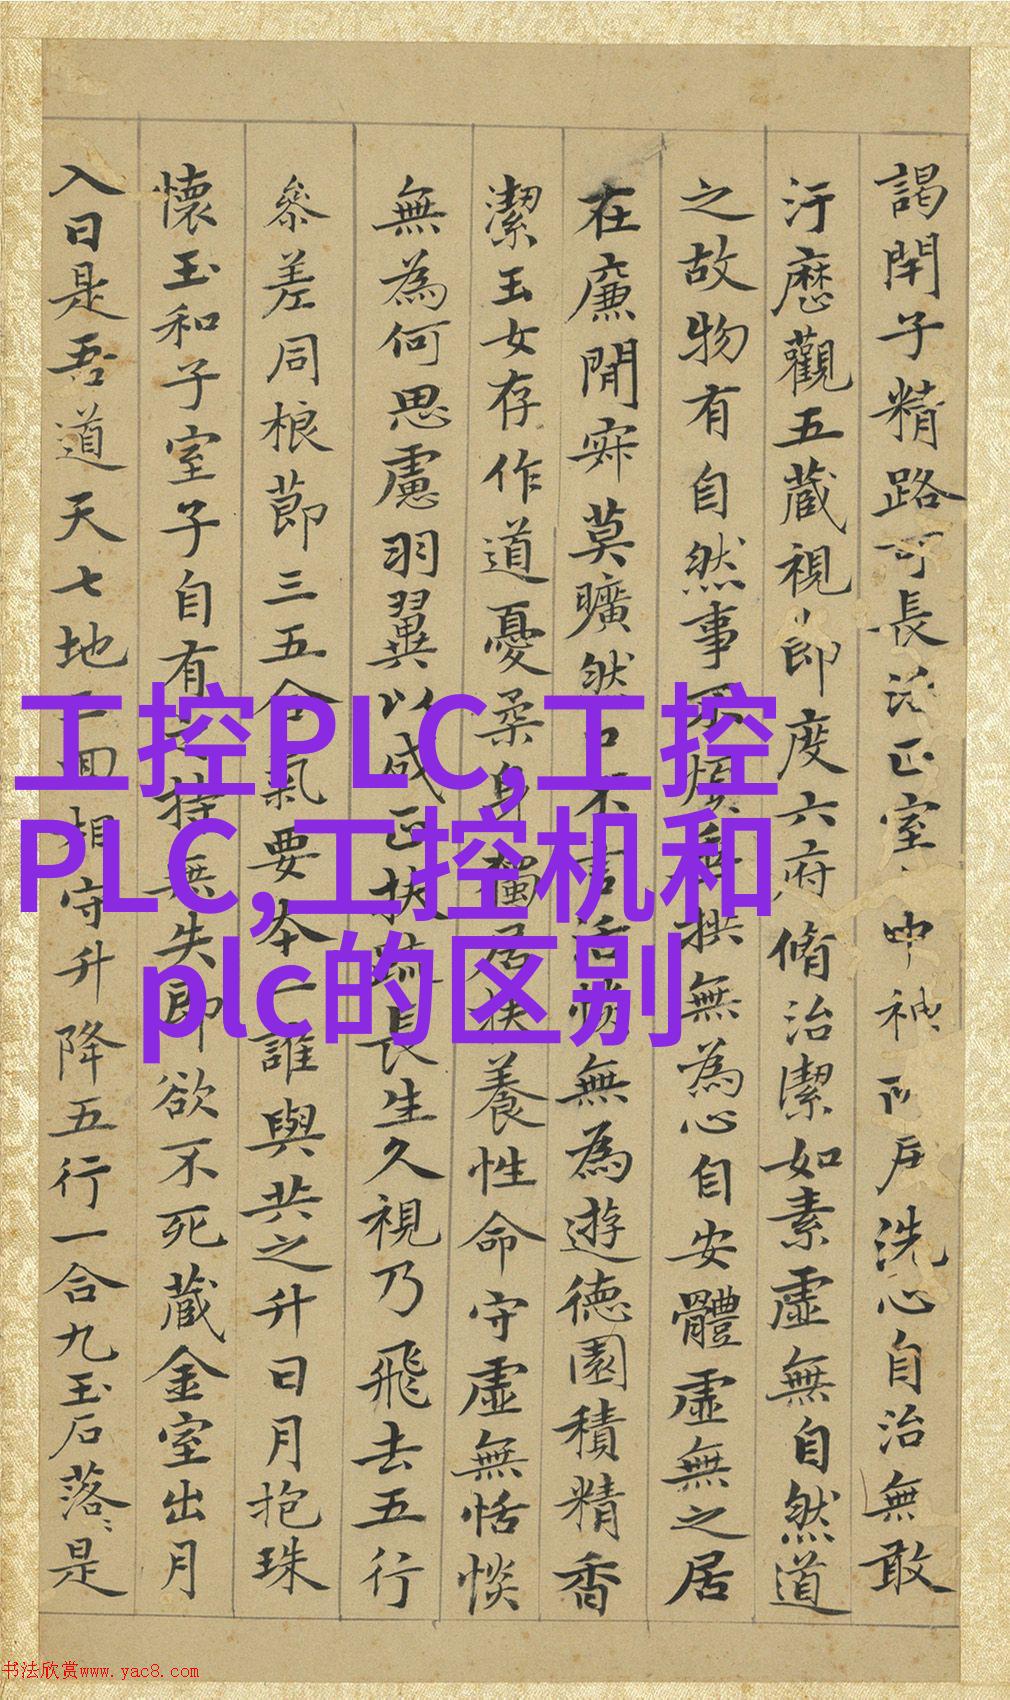 謁閑子精路可長
正室
神
戶洗心自治無敢
汙歷觀五藏視
節度六府脩治潔如素虛無自然道
之故物有自然事不煩
拱無為心自安體虛無之居
在廉閒寂莫曠然口不言
無為遊德園積精香
潔玉女存作道憂柔身獨居扶養性命守虛無恬惔
無為何思慮羽翼以成正扶疏長生久視乃飛去五行
參差同根節三五合氣要本一誰與共之升日月抱珠
懷玉和子室子自有
持無失即欲不死藏金室出月
入日是吾道天七地三回相守升降五行一合九玉石落〻是
工控PLC,工控
PLC,工控机和
plc的区别
书法欣赏www.yac8.com